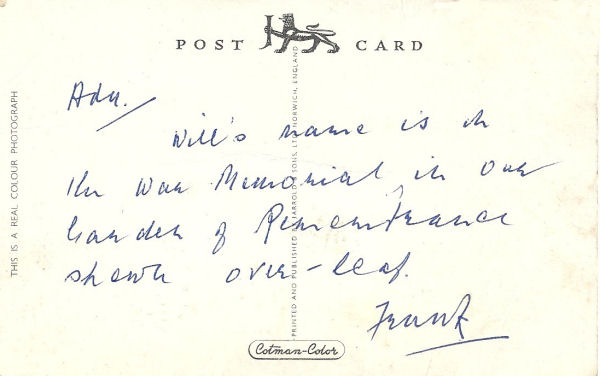 POST CARD
Ada.
Will's name is on
the War Memorial, in our
Garden of Remembrance
shewn over-leaf.
Frank
THIS IS A REAL COLOUR PHOTOGRAPH
PRINTED AND PUBLISHED BY JARROLD & SONS, LTD., NORWICH, ENGLAND
Cotman-Color